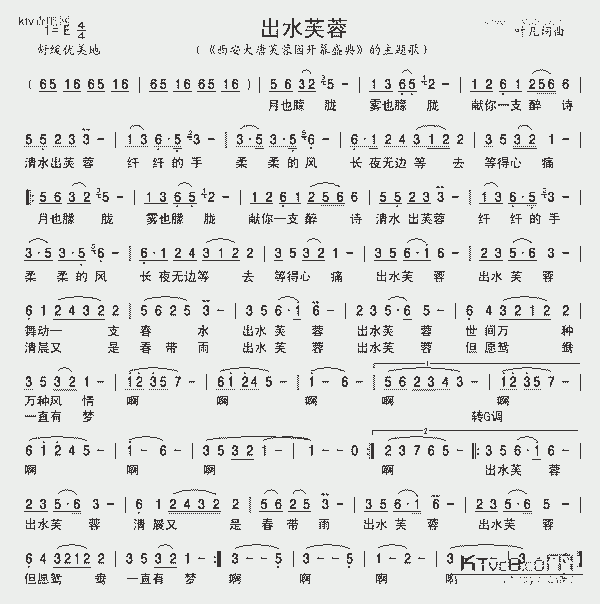 出水芙蓉
1=E 4/4
叶凡词曲
舒缓优美地
(《西安大唐芙蓉园开幕盛典》的主题歌)
(6516 6516 | 6516 6516) | 5 6 3 2 5 - | 1 3 6·5 2 - | 1 2 6 1 2 2 5 6 |
月也朦 胧 雾也朦 胧 献你一支 醉 诗
5 5 2 3 3 - | 1 3 6·5 3 - | 3·5 3·5 6· | 6·1 2 4 3 1 2 2 | 3 5 3 2 1 - |
清水出芙 蓉 纤 纤的 手 柔 柔的 风 长 夜无边 等 去 等得心 痛
5 6 3 2 5 - | 1 3 6·5 2 - | 1 2 6 1 2 5 6 | 5 5 2 3 3 - | 1 3 6·5 3 - |
月也朦 胧 雾也朦 胧 献你一支 醉 诗 清水 出芙蓉 纤 纤的 手
3·5 3·5 6 - | 6·1 2 4 3 1 2 2 | 3 5 3 2 1 - | 3 5 6·1 6 - | 2 3 5·3 6 - |
柔 柔的 风 长 夜无边 等 去 等得心 痛 出水芙 蓉 出水 芙 蓉
6 1 2 4 3 2 2 | 5 6 2 5 3 - | 3 5 6·1 6 - | 2 3 5·6 5 - | 6 4 3 2 1 2 2 |
舞动一 支 春 水 出水 芙 蓉 出水芙 蓉 世 间万 种
清晨又 是 春 带 雨 出水 芙 蓉 出水芙 蓉 但 愿鸳 鸯
3 5 3 2 1 - | 1 2 3 5 7 - | 6 1 2 4 5 - | 1 - 6 - | 5 6 2 3 4 3 | 1 2 3 5 7 - |
万种风 情 啊 啊 啊 啊 啊
一直有 梦 转G调
6 1 2 4 5 - | 1 - 6 - | 3 5 3 2 1 1 - | 1 - - 0 :| 2 3 7 6 5 - |: 3 5 6·1 6 |
啊 啊 啊 啊 出水芙 蓉
2 3 5·6 5 - | 6 1 2 4 3 2 2 | 5 6 2 5 3 - | 3 5 6·1 6 - | 2 3 5·6 5 - |
出水芙 蓉 清 晨又 是 春 带 雨 出水 芙 蓉 出水芙 蓉
6 4 3212 2 | 3 5 3 2 1 - :| 3 - 3 - | 5 - 3 - | 1 - - - |
但愿鸳 鸯 一直有 梦 啊 啊 啊